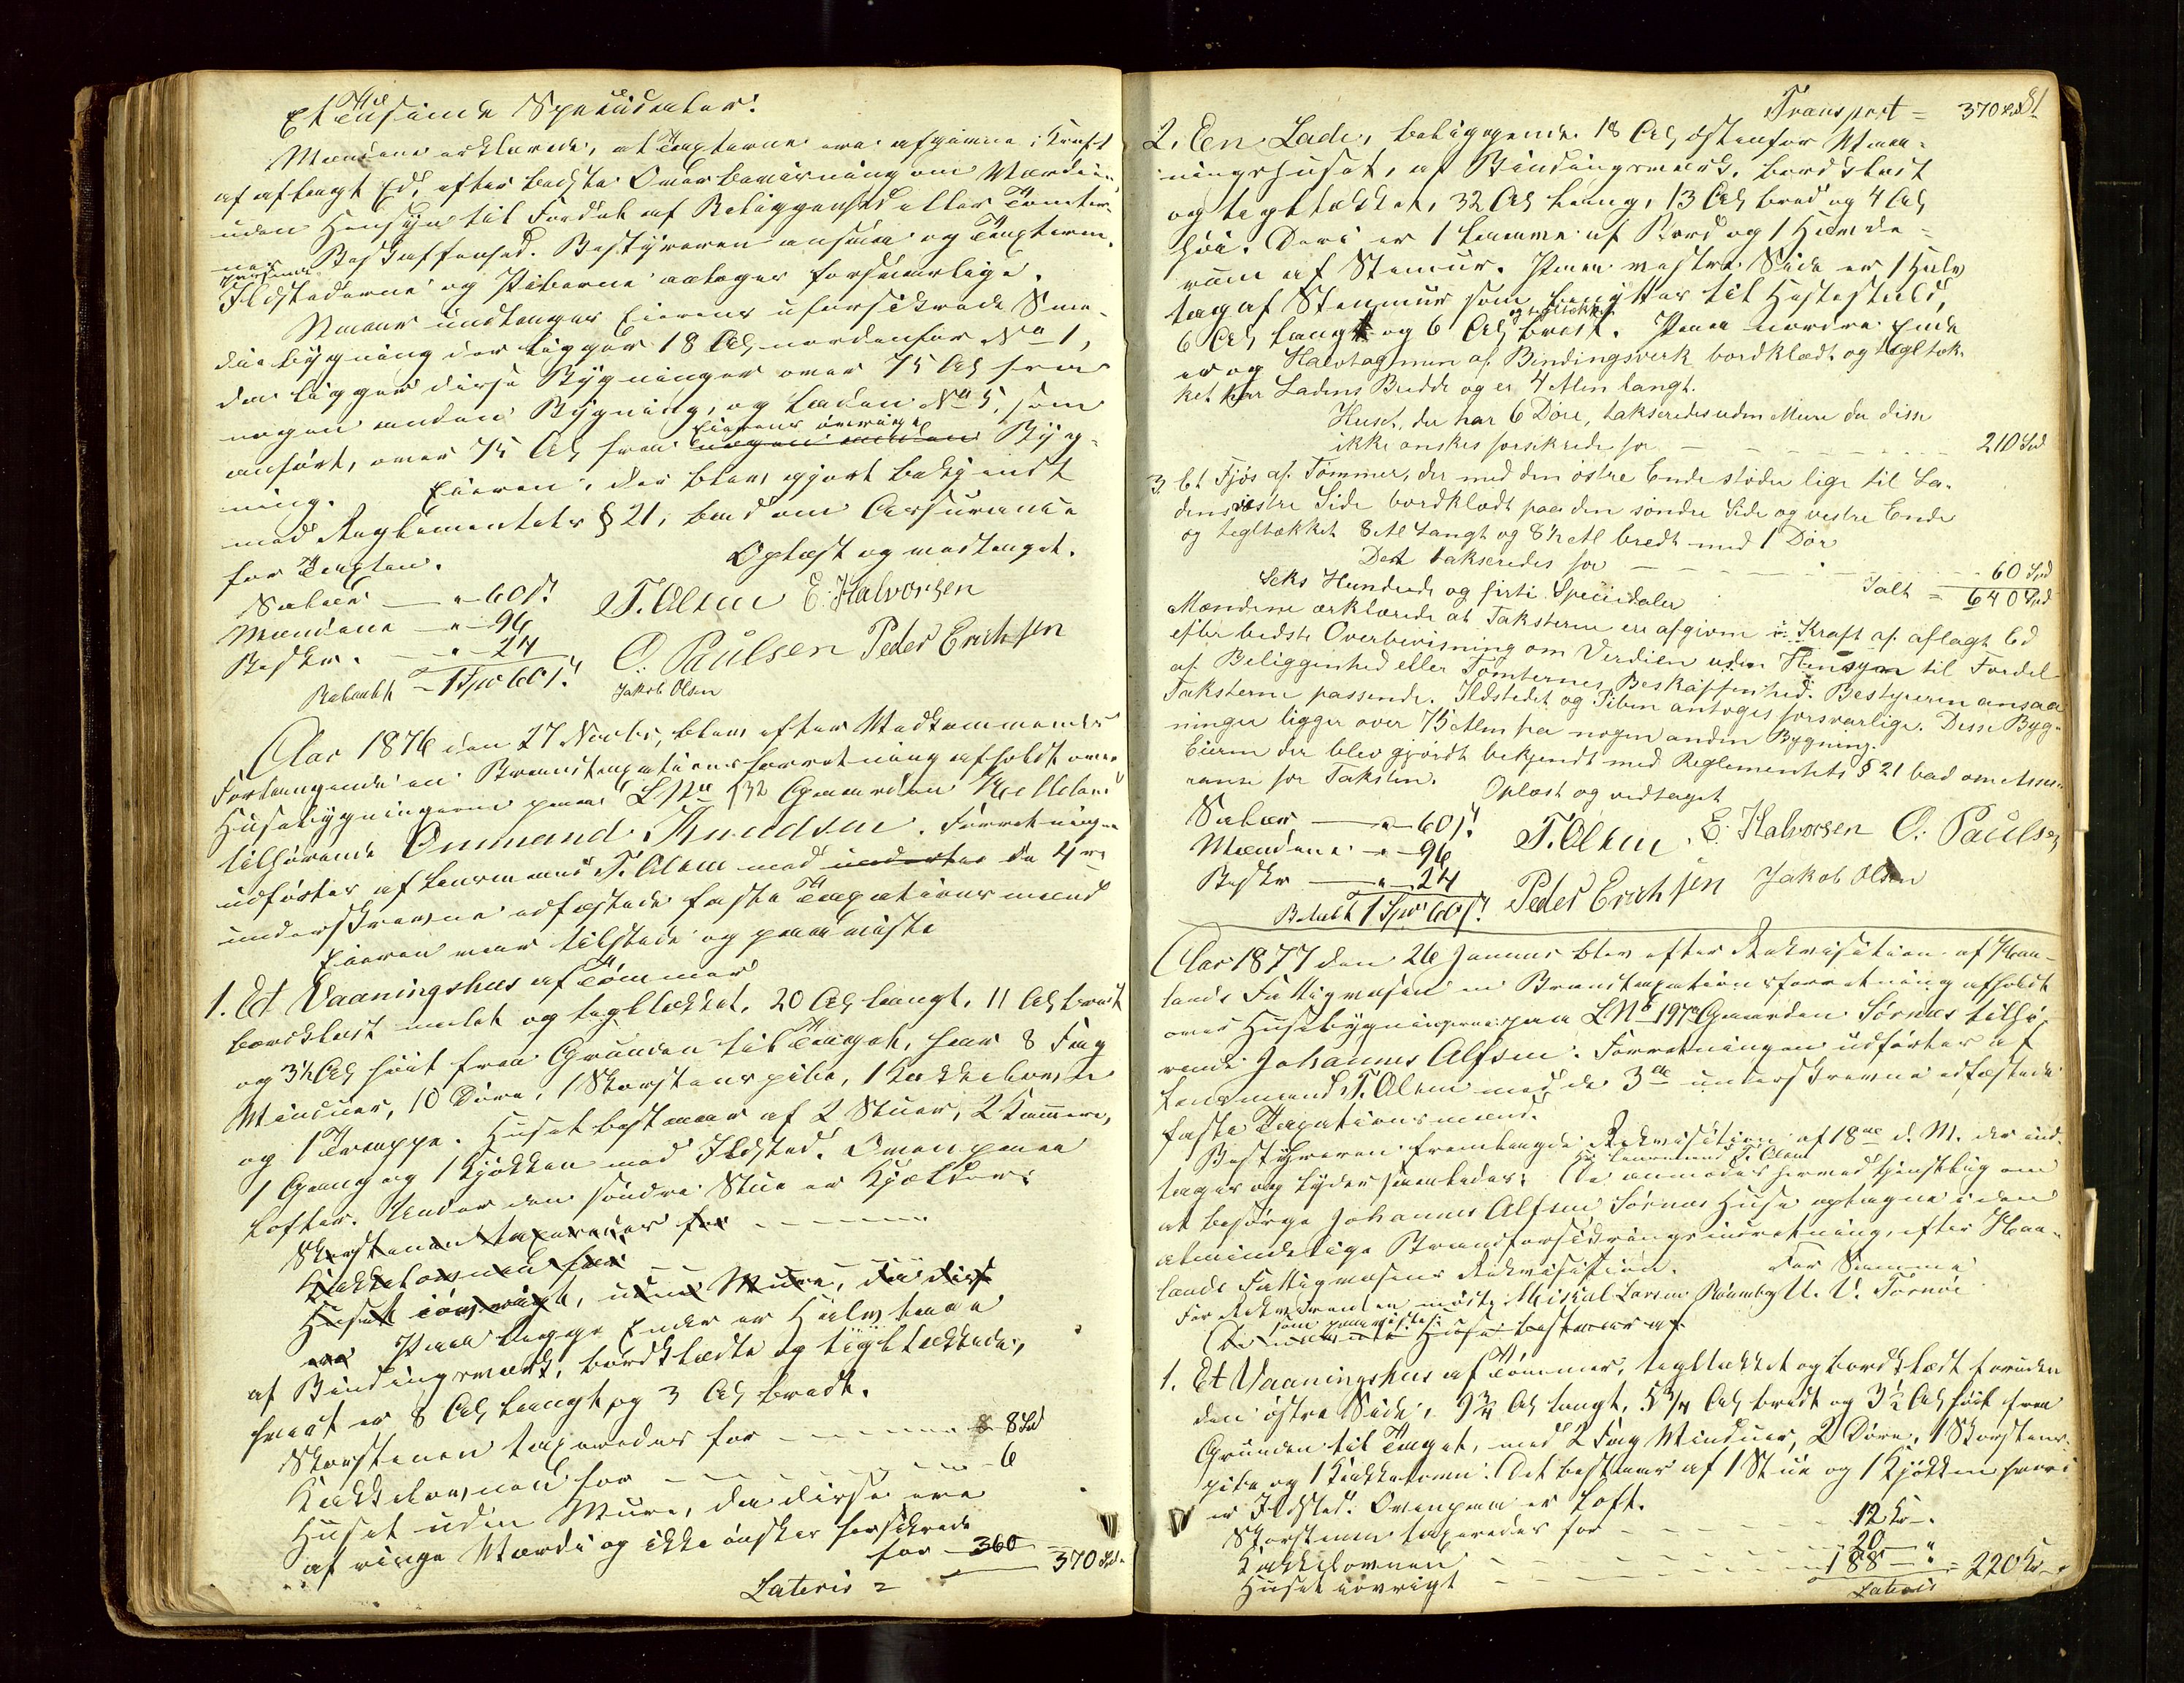 Et Tusinde Speciedaler.
Mændene erklærede, at Taxterne ere afgivne i Kraft
af aflagt Ed, efter bedste Overbeviisning om Værdien
uden Hensyn til Fordel af Beliggenhed eller Tomter-
nes Beskaffenhed. Bestyreren ansaa og Taxterne
passende
Ildstederne og Piberne antoges forsvarlige.
Naar undtages Eierens uforsikrede Sme-
diebygning der ligger 18 Al nordenfor No 1,
da ligger disse Bygninger over 75 Al fra
nogen anden Bygning, og Laden No 5, som
Eierens øvrige
anført, over 75 Al fra nogen anden Byg-
ning. Eieren, der blev gjort bekjendt
med Reglementets § 21, bad om Assurance
for Taxten.
Oplæst og vedtaget.
Salær — " 60 s.
Mændene — " 96
Beskr. — " 24
Betalt - 1 Spd 60 s.
T. Olsen E. Halvorsen
O. Paulsen Peder Erichsen
Jakob Olsen
Aar 1876 den 27 Novbr, blev efter Vedkommendes
Forlangende en Brandtaxationsforretning afholdt over
Husebygningerne paa LNo 132 Gaarden Helleland
tilhørende Ommund Knudsen. Forretningen
udførtes af Lensmand T. Olsen med undertee de 4re
underskrevne edfæstede faste Taxationsmænd
Eieren var tilstede og paaviste
1. Et Vaaningshus af Tømmer
bordklædt malet og tegltækket, 20 Al langt, 11 Al bredt
og 3½ Al høit fra Grunden til Taget, har 8 Fag
Vinduer, 10 Døre, 1 Skorstenspibe, 1 Kakkelovn
og 1 Trappe. Huset bestaaer af 2 Stuer, 2 Kammere,
1 Gang og 1 Kjøkken med Ildsted. Ovenpaa
Lofter. Under den søndre Stue er Kjælder.
Skorstenen taxeredes for - - - -
Kakkelovnen for
Huset iøvrigt, uden Mure, da disse
ere Paa begge Ender er Halvtage
af Bindingsværk, bordklædte og tegltækkede,
hvert er 8 Al langt og 3 Al bredt.
Skorstenen taxeredes for - - - - 8 Spd
Kakkelovnen for - - - - 6
Huset uden Mure, da disse ere
af ringe Værdi og ikke ønskes forsikrede
for - 360
Lateris = 370 Spd.
81
Transport = 370 Spd
2. En Lade, beliggende 18 Al østenfor Vaa-
ningshuset, af Bindingsværk, bordklædt
og tegltækket, 32 Al lang, 13 Al bred og 4 Al
høi. Deri er 1 Laave af Bord og 1 Hønde-
rum af Stenmur. Paa vestre Side er 1 Halv
tag af Stenmur som benyttes til Hestestald,
og tegltækket
6 Al langt og 6 Al bredt. Paa nordre Ende
er og Halvtag men af Bindingsverk bordklædt og tegltæk-
ket har Ladens Bredde og er 4 Alen langt.
Huset, der har 6 Døre, takseredes uden Mure da disse
ikke ønskes forsikrede for - - - - 210 Spd
3. Et Fjøs af Tømmer, der med den østre Ende støder lige til La-
dens vestre Side bordklædt paa den søndre Side og vestre Ende
og tegltækket 8 Al langt og 8½ Al bredt med 1 Dør
Det takseredes for - - - - 60 Spd
Ialt = 640 Spd
Seks Hundrede og firti Speciedaler
Mændene erklærede at Taksterne ere afgivne i Kraft af aflagt Ed
efter bedste Overbevisning om Verdien uden Hensyn til Fordel
af Beliggenhed eller Tomternes Beskaffenhed. Bestyreren ansaa
Taksterne passende. Ildstedet og Piben antoges forsvarlige. Disse Byg-
ninger ligger over 75 Alen fra nogen anden Bygning.
Eieren der blev gjordt bekjendt med Reglementets § 21 bad om Assu-
rance for Taksten.
Oplæst og vedtaget
Salær — " 60 s.
Mændene - " - 96
Beskr — " - 24
Betalt 1 Spd 60 s.
T. Olsen. E. Halvorsen O. Paulsen
Peder Erichsen Jakob Olsen
Aar 1877 den 26 Januar blev efter Rekvisition af Haa-
lands Fattigvæsen en Brandtaxationsforretning afholdt
over Husebygningerne paa LNo 197a Gaarden Sørnes tilhø-
rende Johannes Alfsen. Forretningen udførtes af
Lensmand T. Olsen med de 3de underskrevne edfæstede
faste Taxationsmænd.
Bestyreren fremlagde Rekvisition af 18de d. M. der ind-
Hr Lensmand T. Olsen
tages og lyder saaledes: De anmodes herved tjenstligt om
at besørge Johannes Alfsen Sørnes Huse optagne i den
almindelige Brandforsikringsindretning, efter Haa-
lands Fattigvæsens Rekvisition. For Samme
For Rekvirenten mødte Mikal Larsen Raunberg U. V. Tornøe
som paavistes:
De nævnte Huse bestaar af
1. Et Vaaningshus af Tømmer, tegltækket og bordklædt foruden
den østre Side, 9¾ Al langt, 5¾ Al bredt og 3½ Al høit fra
Grunden til Taget, med 2 Fag Vinduer, 2 Døre, 1 Skorstens-
pibe og 1 Kakkelovn. Det bestaar af 1 Stue og 1 Kjøkken hvori
er Ildsted. Ovenpaa er Loft.
Skorstenen taxeredes for - - - - 12 Kr -
Kakkelovnen - - - - 20 - "
Huset iøvrigt - - - - 188 - "
Lateris = 220 Kr -